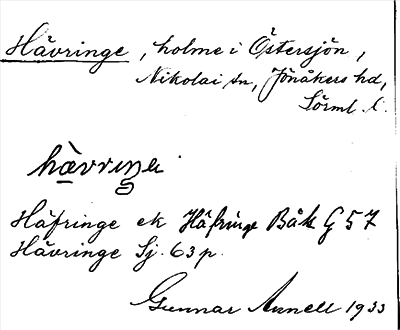 Hävringe, holme i Östersjön,
Nikolai sn, Jönåkers hd,
Sörml. l.
hävriŋe
Häfringe ek Häfringe Båk G 57
Hävringe Sj. 63 p.
Gunnar Annell 1933